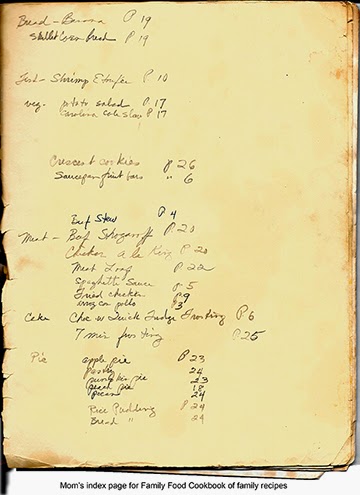 Bread - Banana P 19
Skillet Corn bread P 19
Fish - Shrimp Etoufee P 10
veg. potato salad P. 17
Carolina Cole Slaw P 17
Crescent cookies P 26
Saucepan fruit bars " 6
Beef Stew P 4
Meat - Beef Stroganoff P 20
Chicken a la King P 20
Meat Loaf P 22
Spaghetti Sauce P 5
Fried chicken P 9
arroz con pollo P 3
Cake Choc w Quick Fudge Frosting P 6
7 min frosting P 25
Pie apple pie P 23
pastry 24
pumpkin pie 23
peach pie 18
pecan 24
Rice Pudding P 24
Bread " 24
Mom's index page for Family Food Cookbook of family recipes